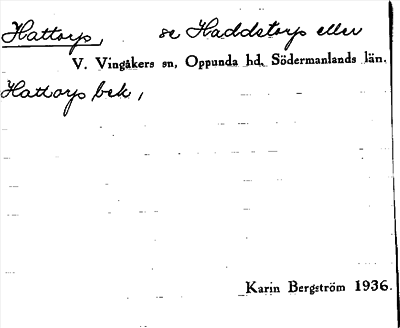 Hattorp, se Haddstorp eller
V. Vingåkers sn, Oppunda hd, Södermanlands län.
Hattorps bek,
Karin Bergström 1936.